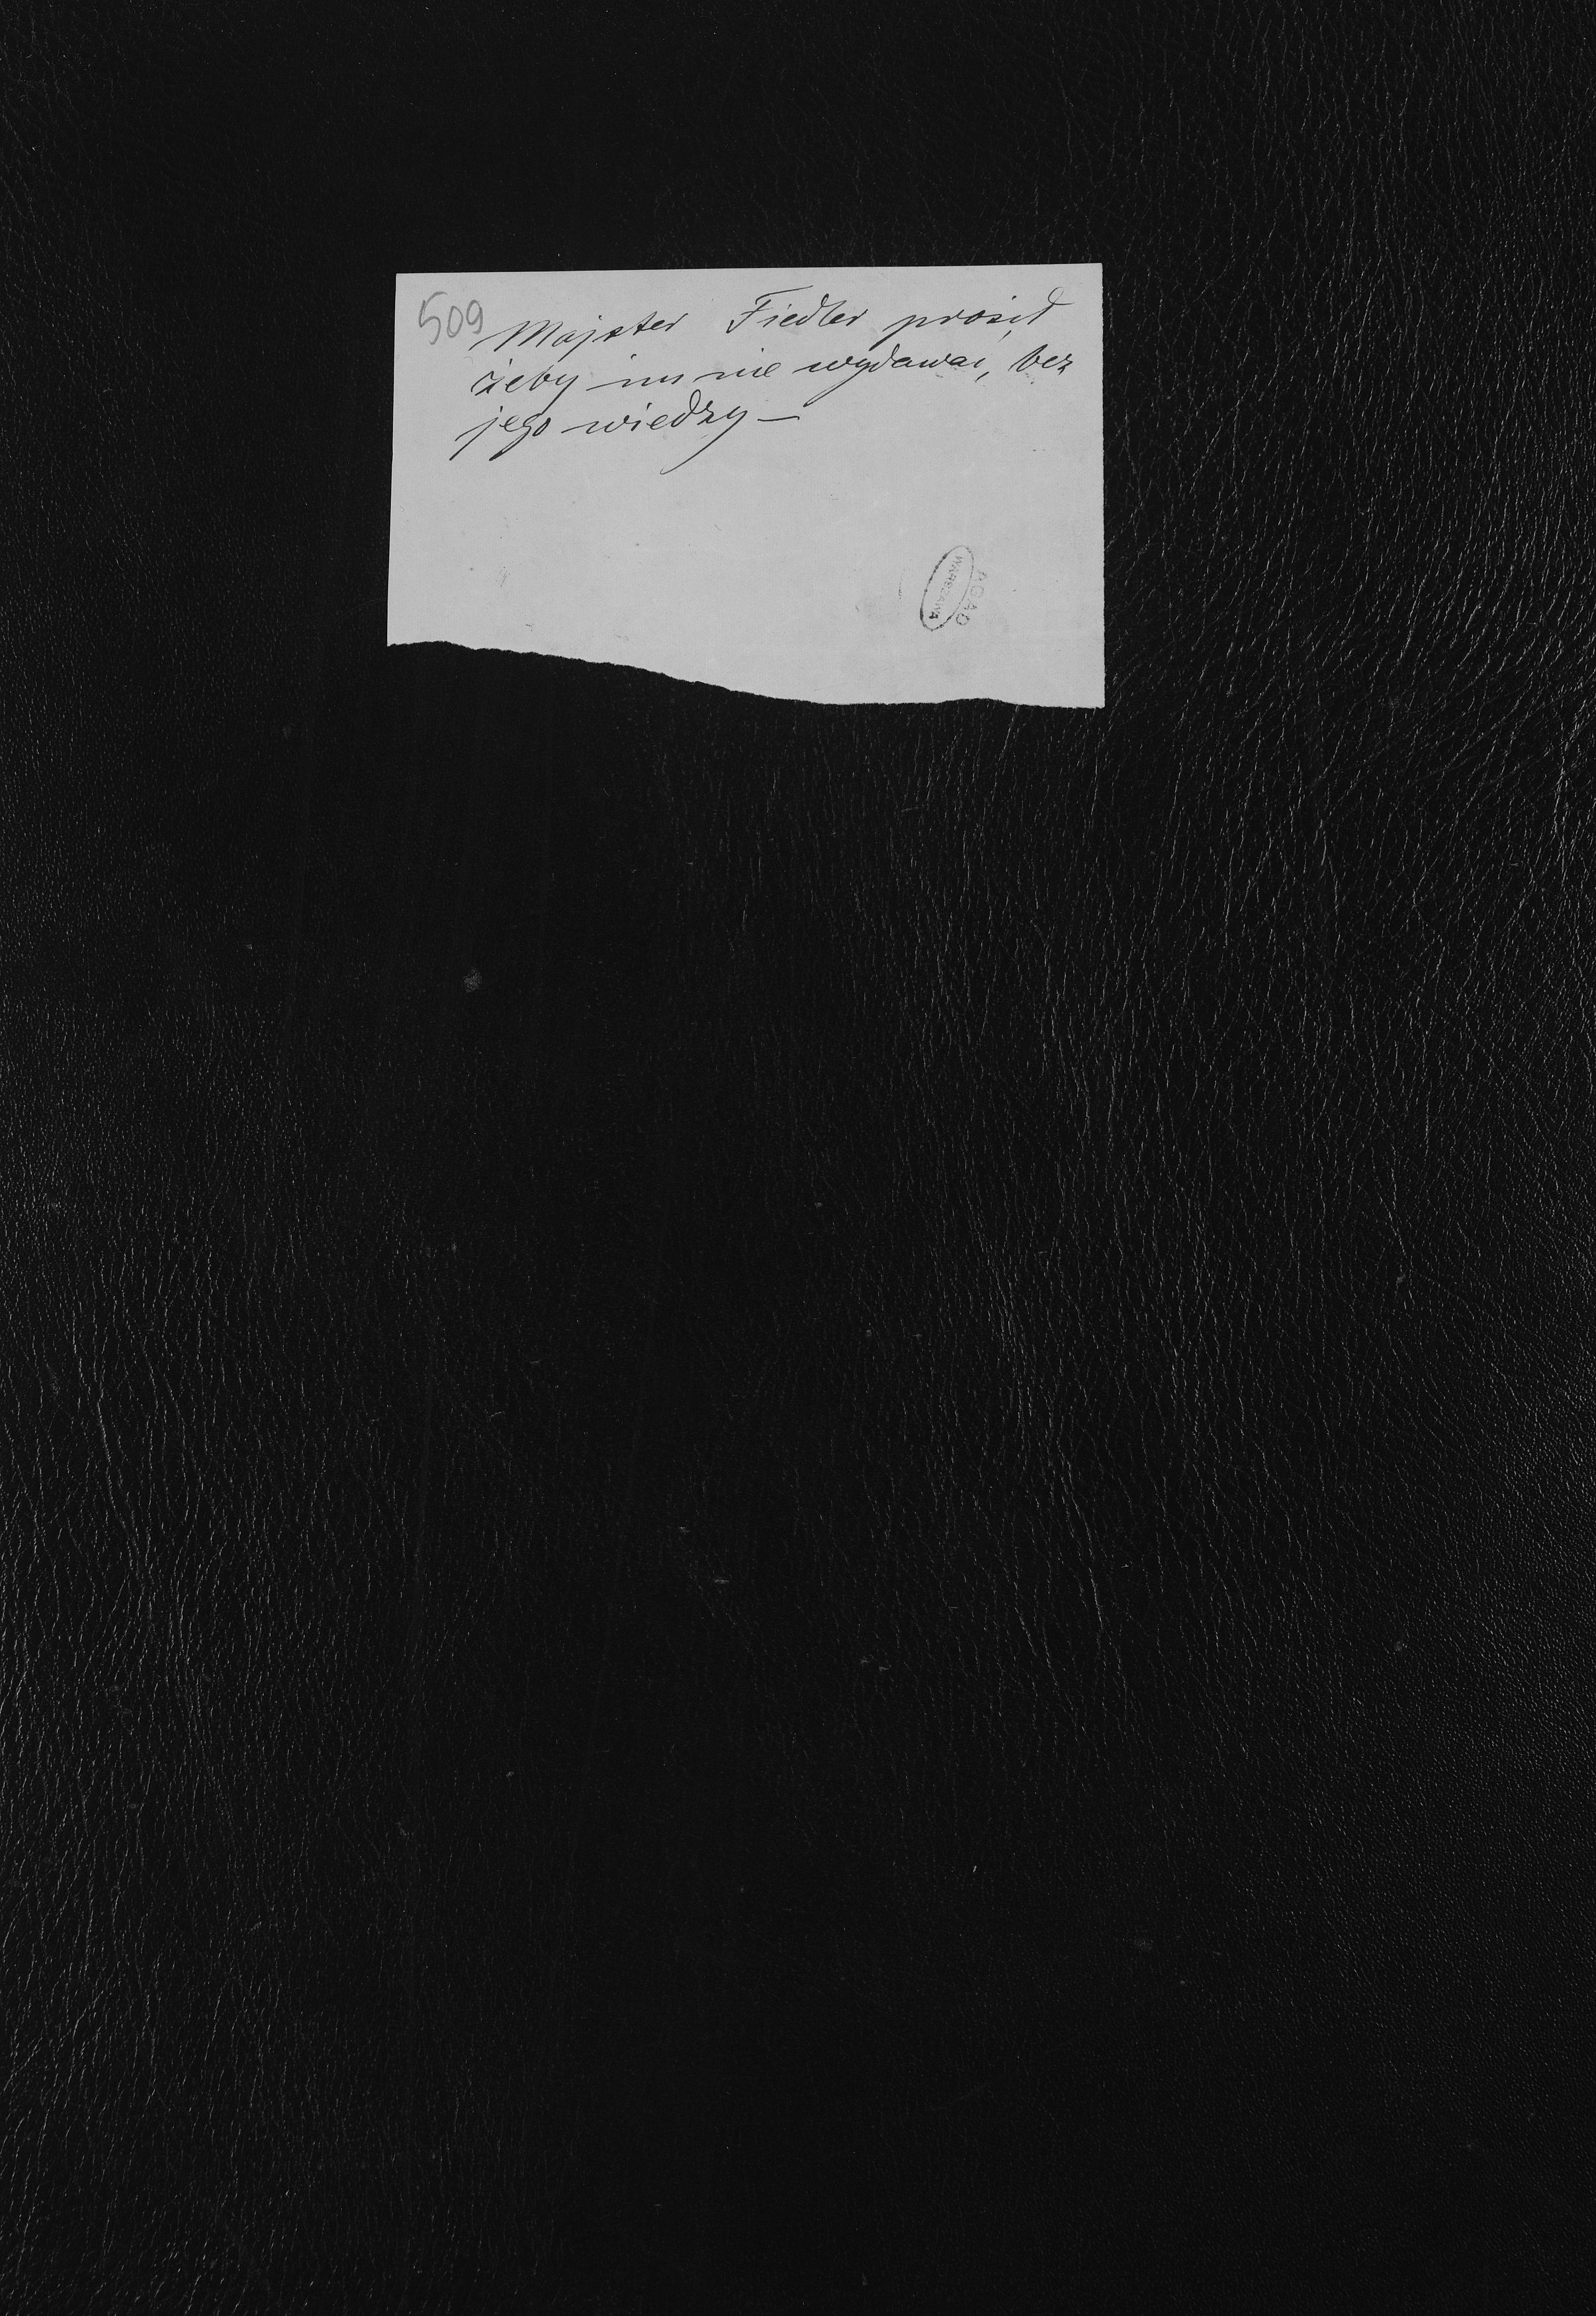 509
Majster Fiedler prosił
żeby im nie wydawać, bez
jego wiedzy —
AGAD
WARSZAWA